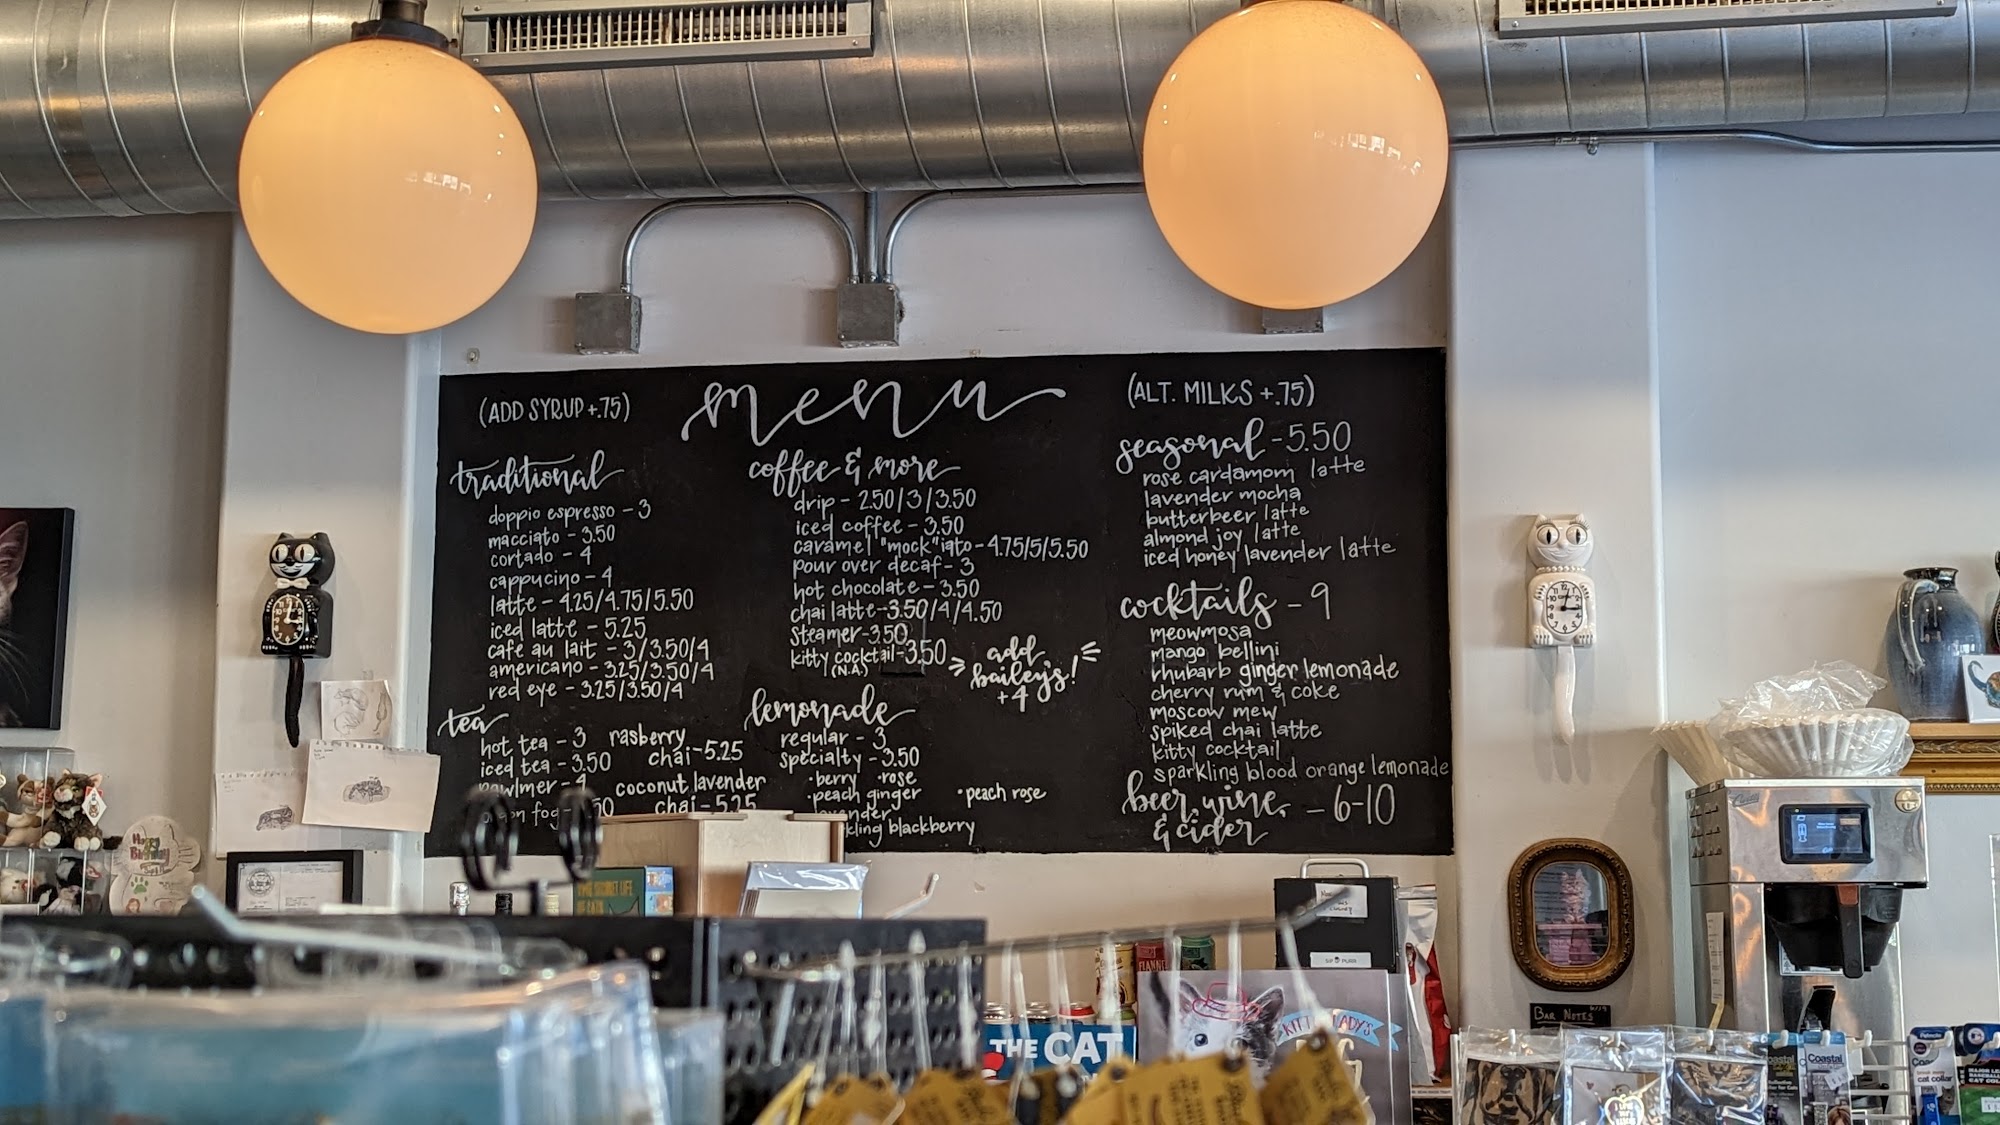 menu
(ADD SYRUP +.75)
(ALT. MILKS +.75)
traditional
doppio espresso - 3
macciato - 3.50
cortado - 4
cappucino - 4
latte - 4.25/4.75/5.50
iced latte - 5.25
cafe au lait - 3/3.50/4
americano - 3.25/3.50/4
red eye - 3.25/3.50/4
tea
hot tea - 3
iced tea - 3.50
pawlmer - 4
fog
rasberry
chai - 5.25
coconut lavender
chai - 5.25
coffee & more
drip - 2.50/3/3.50
iced coffee - 3.50
caramel "mock"iato - 4.75/5/5.50
pour over decaf - 3
hot chocolate - 3.50
chai latte - 3.50/4/4.50
steamer - 3.50
kitty cocktail - 3.50
(N.A)
add
bailey's!
+4
lemonade
regular - 3
specialty - 3.50
·berry ·rose
·peach ginger ·peach rose
blackberry
seasonal - 5.50
rose cardamom latte
lavender mocha
butterbeer latte
almond joy latte
iced honey lavender latte
cocktails - 9
meowmosa
mango bellini
rhubarb ginger lemonade
cherry rum & coke
moscow mew
spiked chai latte
kitty cocktail
sparkling blood orange lemonade
beer, wine, - 6-10
& cider
BAR NOTES
THE CAT
SIP & PURR
Coastal
Coastal
cat collar